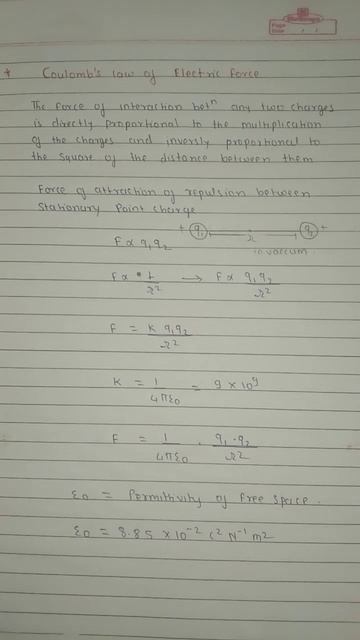 Page
Date
* Coulomb's law of Electric force
The force of interaction betn any two charges
is directly proportional to the multiplication
of the charges and inversly proportional to
the Square of the distance between them
Force of attraction of repulsion between
Stationary Point charge
+ q₁ r q₂ +
in vaccum
F ∝ q₁ q₂
F ∝ 1/r² → F ∝ q₁ q₂/r²
F = K q₁q₂/r²
K = 1/4πε0 = 9 × 10⁹
F = 1/4πε0 . q₁ . q₂/r²
ε0 = Permittivity of free space.
ε0 = 8.85 × 10⁻² C² N⁻¹ m²